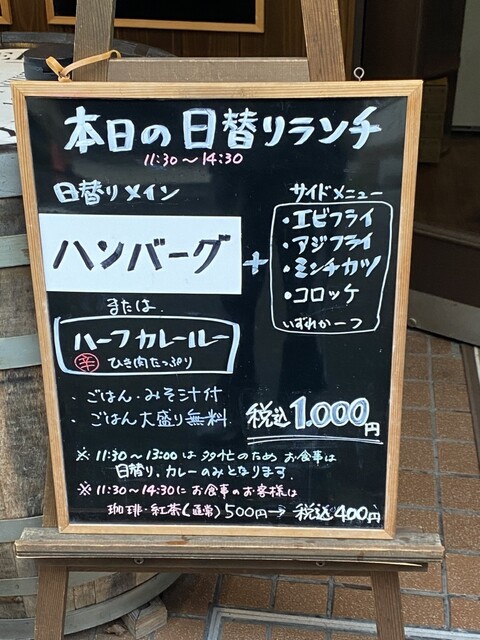 本日の日替りランチ
11:30〜14:30
日替りメイン
ハンバーグ
または
ハーフカレールー
辛 ひき肉たっぷり
+
サイドメニュー
・エビフライ
・アジフライ
・ミンチカツ
・コロッケ
いずれか一つ
・ごはん・みそ汁付
・ごはん大盛り無料
税込1.000円
※11:30〜13:00は多忙のためお食事は
日替り、カレーのみとなります。
※11:30〜14:30にお食事のお客様は
珈琲・紅茶(通常)500円→税込400円